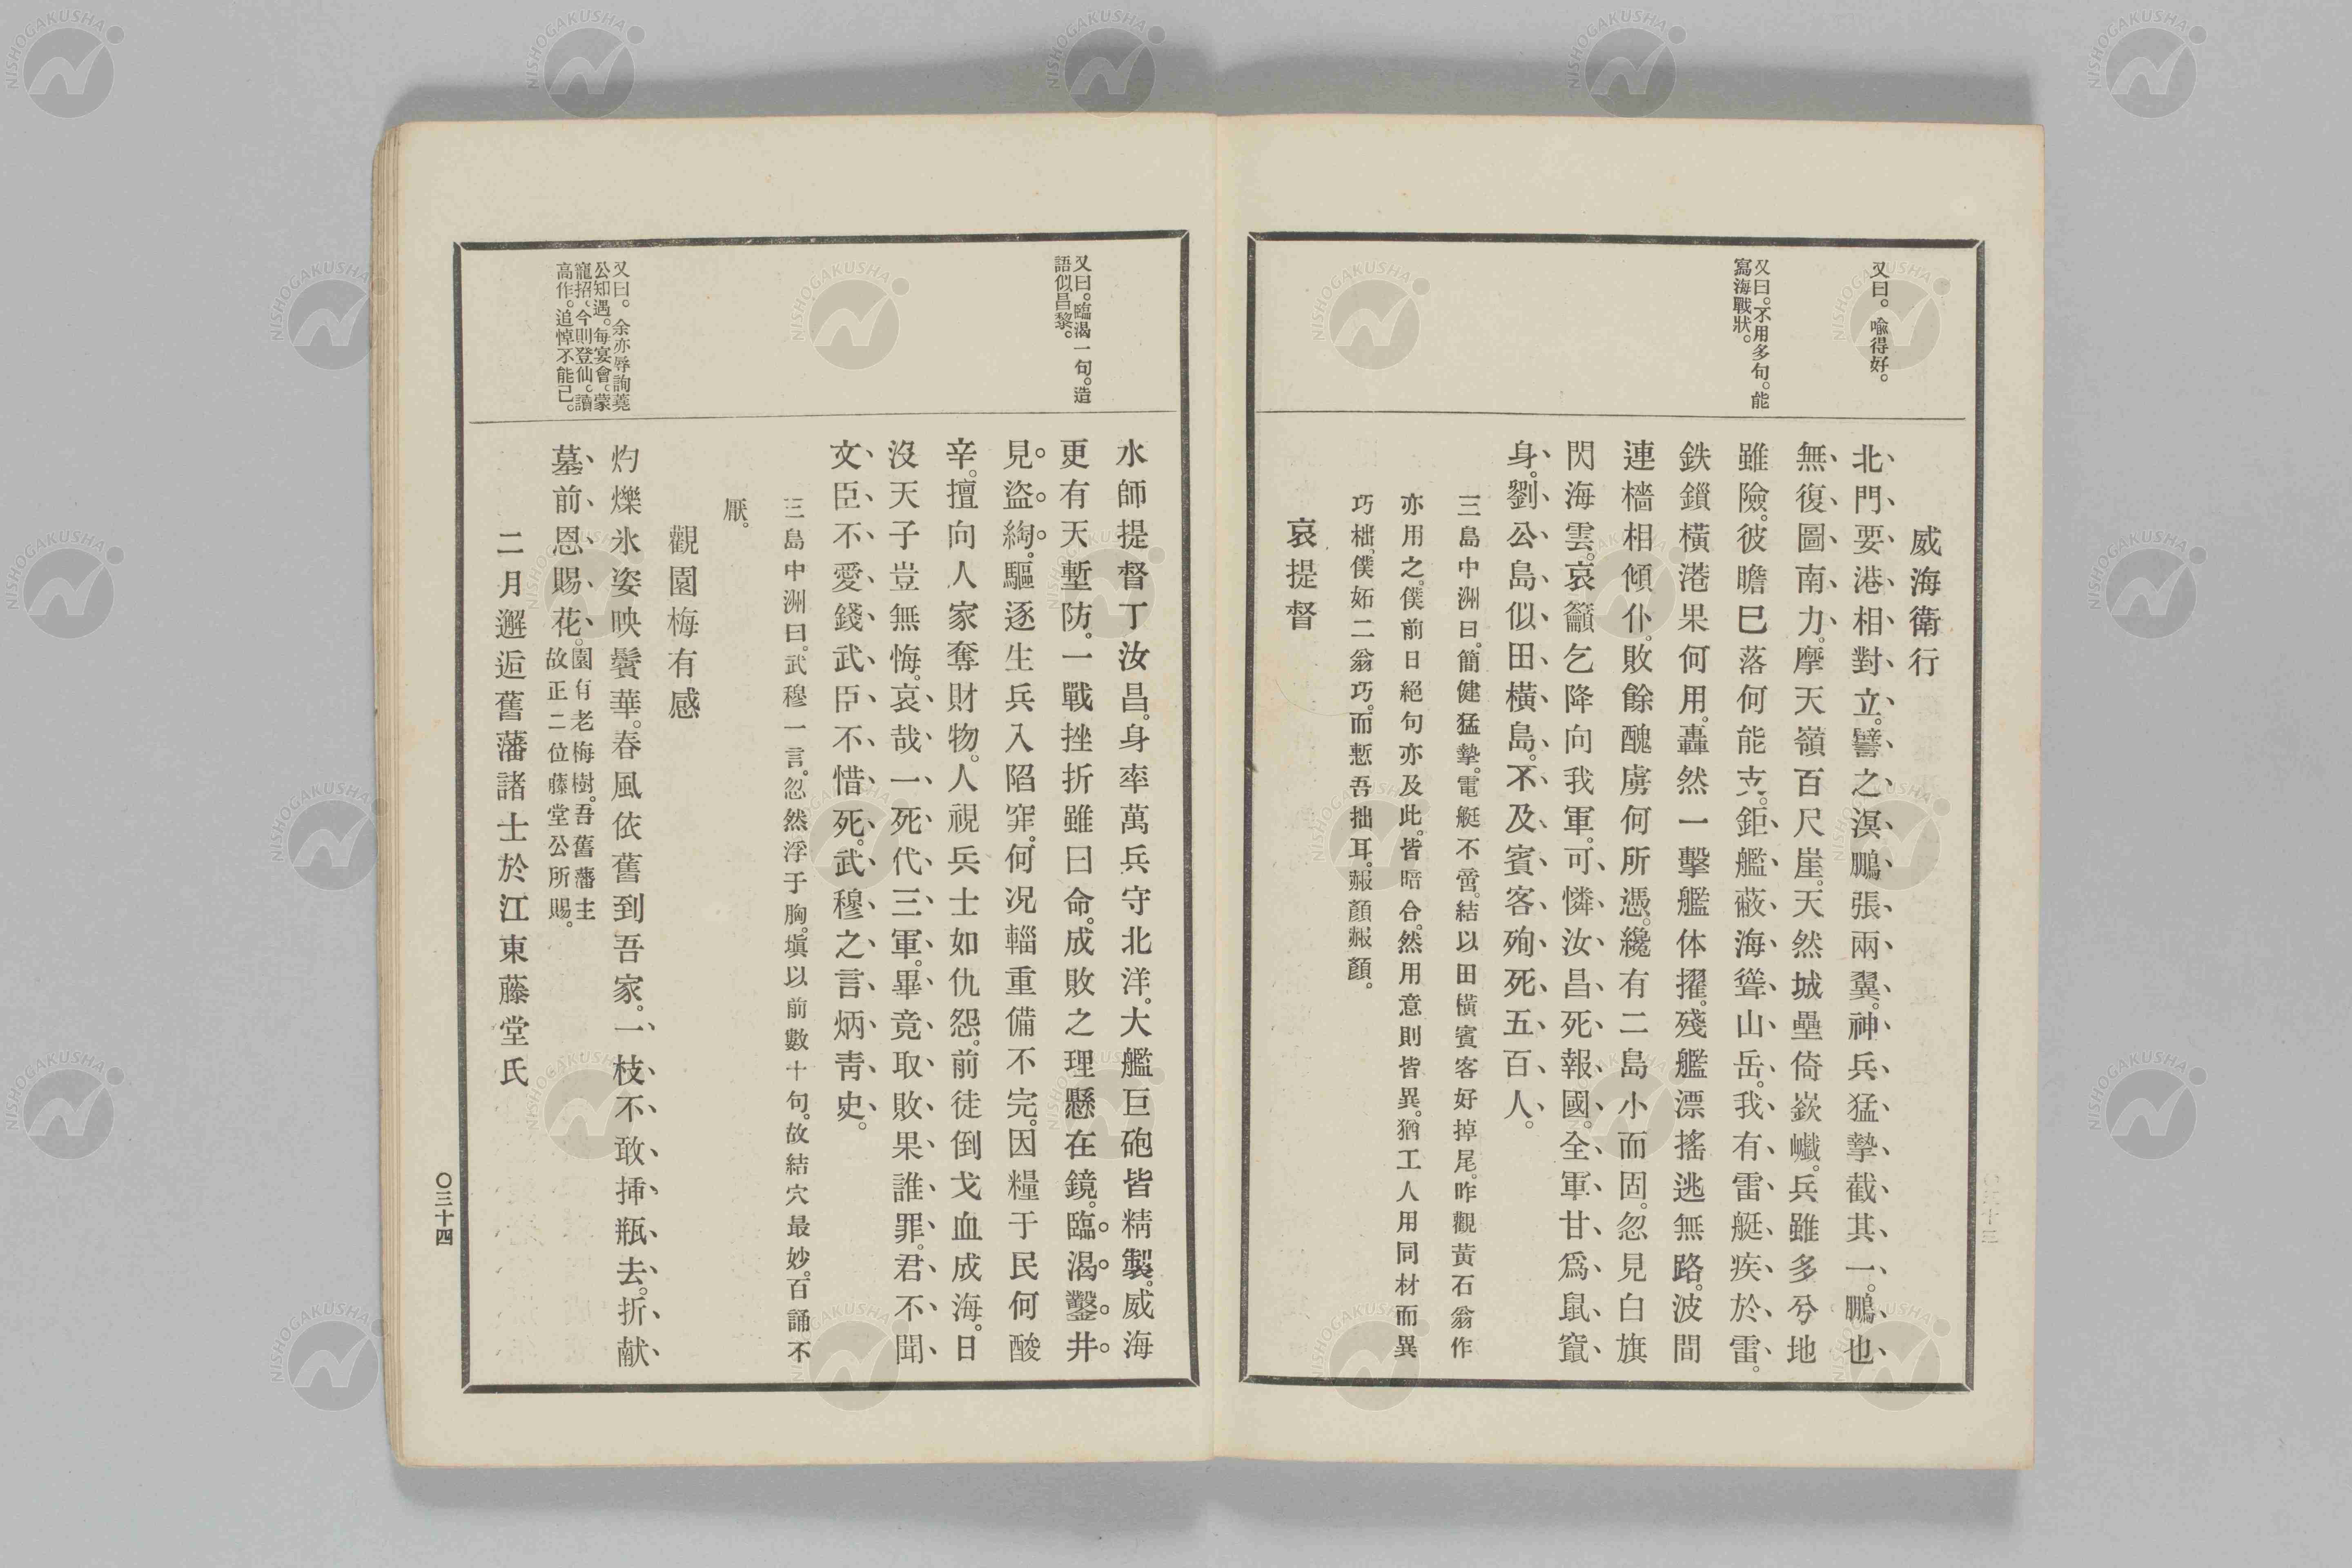 又曰。喩得好。
又曰。不用多句。能
寫海戰狀。
威海衛行
北門要港相對立。譬之溟鵬張兩翼。神兵猛摯截其一。鵬也
無復圖南力。摩天嶺百尺崖。天然城壘倚嶔巇。兵雖多兮地
雖險。彼瞻已落何能支。鉅艦蔽海聳山岳。我有雷艇疾於雷。
鉄鎖橫港果何用。轟然一擊艦体擢。殘艦漂搖逃無路。波間
連檣相傾仆。敗餘醜虜何所憑。纔有二島小而固。忽見白旗
閃海雲。哀籲乞降向我軍。可憐汝昌死報國。全軍甘爲鼠竄
身。劉公島似田橫島。不及賓客殉死五百人。
三島中洲曰。簡健猛摯。電艇不啻。結以田橫賓客好掉尾。昨觀黃石翁作
亦用之。僕前日絕句亦及此。皆暗合。然用意則皆異。猶工人用同材而異
巧拙。僕妬二翁巧。而慙吾拙耳。赧顏赧顏。
哀提督
又曰。臨渴一句。造
語似昌黎。
又曰。余亦辱詢蕘
公知遇。每宴會。蒙
寵招。今則登仙。讀
高作。追悼不能已。
水師提督丁汝昌。身率萬兵守北洋。大艦巨砲皆精製。威海
更有天塹防。一戰挫折雖曰命。成敗之理懸在鏡。臨渴鑿井
見盜綯。驅逐生兵入陷穽。何況輜重備不完。因糧于民何酸
辛。擅向人家奪財物。人視兵士如仇怨。前徒倒戈血成海。日
沒天子豈無悔。哀哉一死代三軍。畢竟取敗果誰罪。君不聞
文臣不愛錢武臣不惜死。武穆之言炳靑史。
三島中洲曰。武穆一言。忽然浮于胸。塡以前數十句。故結穴最妙。百誦不
厭。
觀園梅有感
灼爍氷姿映鬢華。春風依舊到吾家。一枝不敢揷瓶去。折献
墓前恩賜花。園有老梅樹。吾舊藩主
故正二位藤堂公所賜。
二月邂逅舊藩諸士於江東藤堂氏
〇三十四